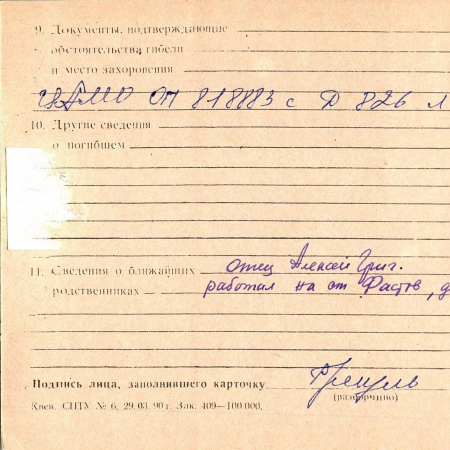 9. Документы, подтверждающие
обстоятельства гибели
и место захоронения
ЦАМО ОП 818883 с Д 826 Л
10. Другие сведения
о погибшем
11. Сведения о ближайших отец Алексей Григ.
родственниках работал на ст Фастов, д
Подпись лица, заполнившего карточку
(разборчиво)
Киев. СПТУ № 6, 29.03.90 г. Зак. 409—100.000.